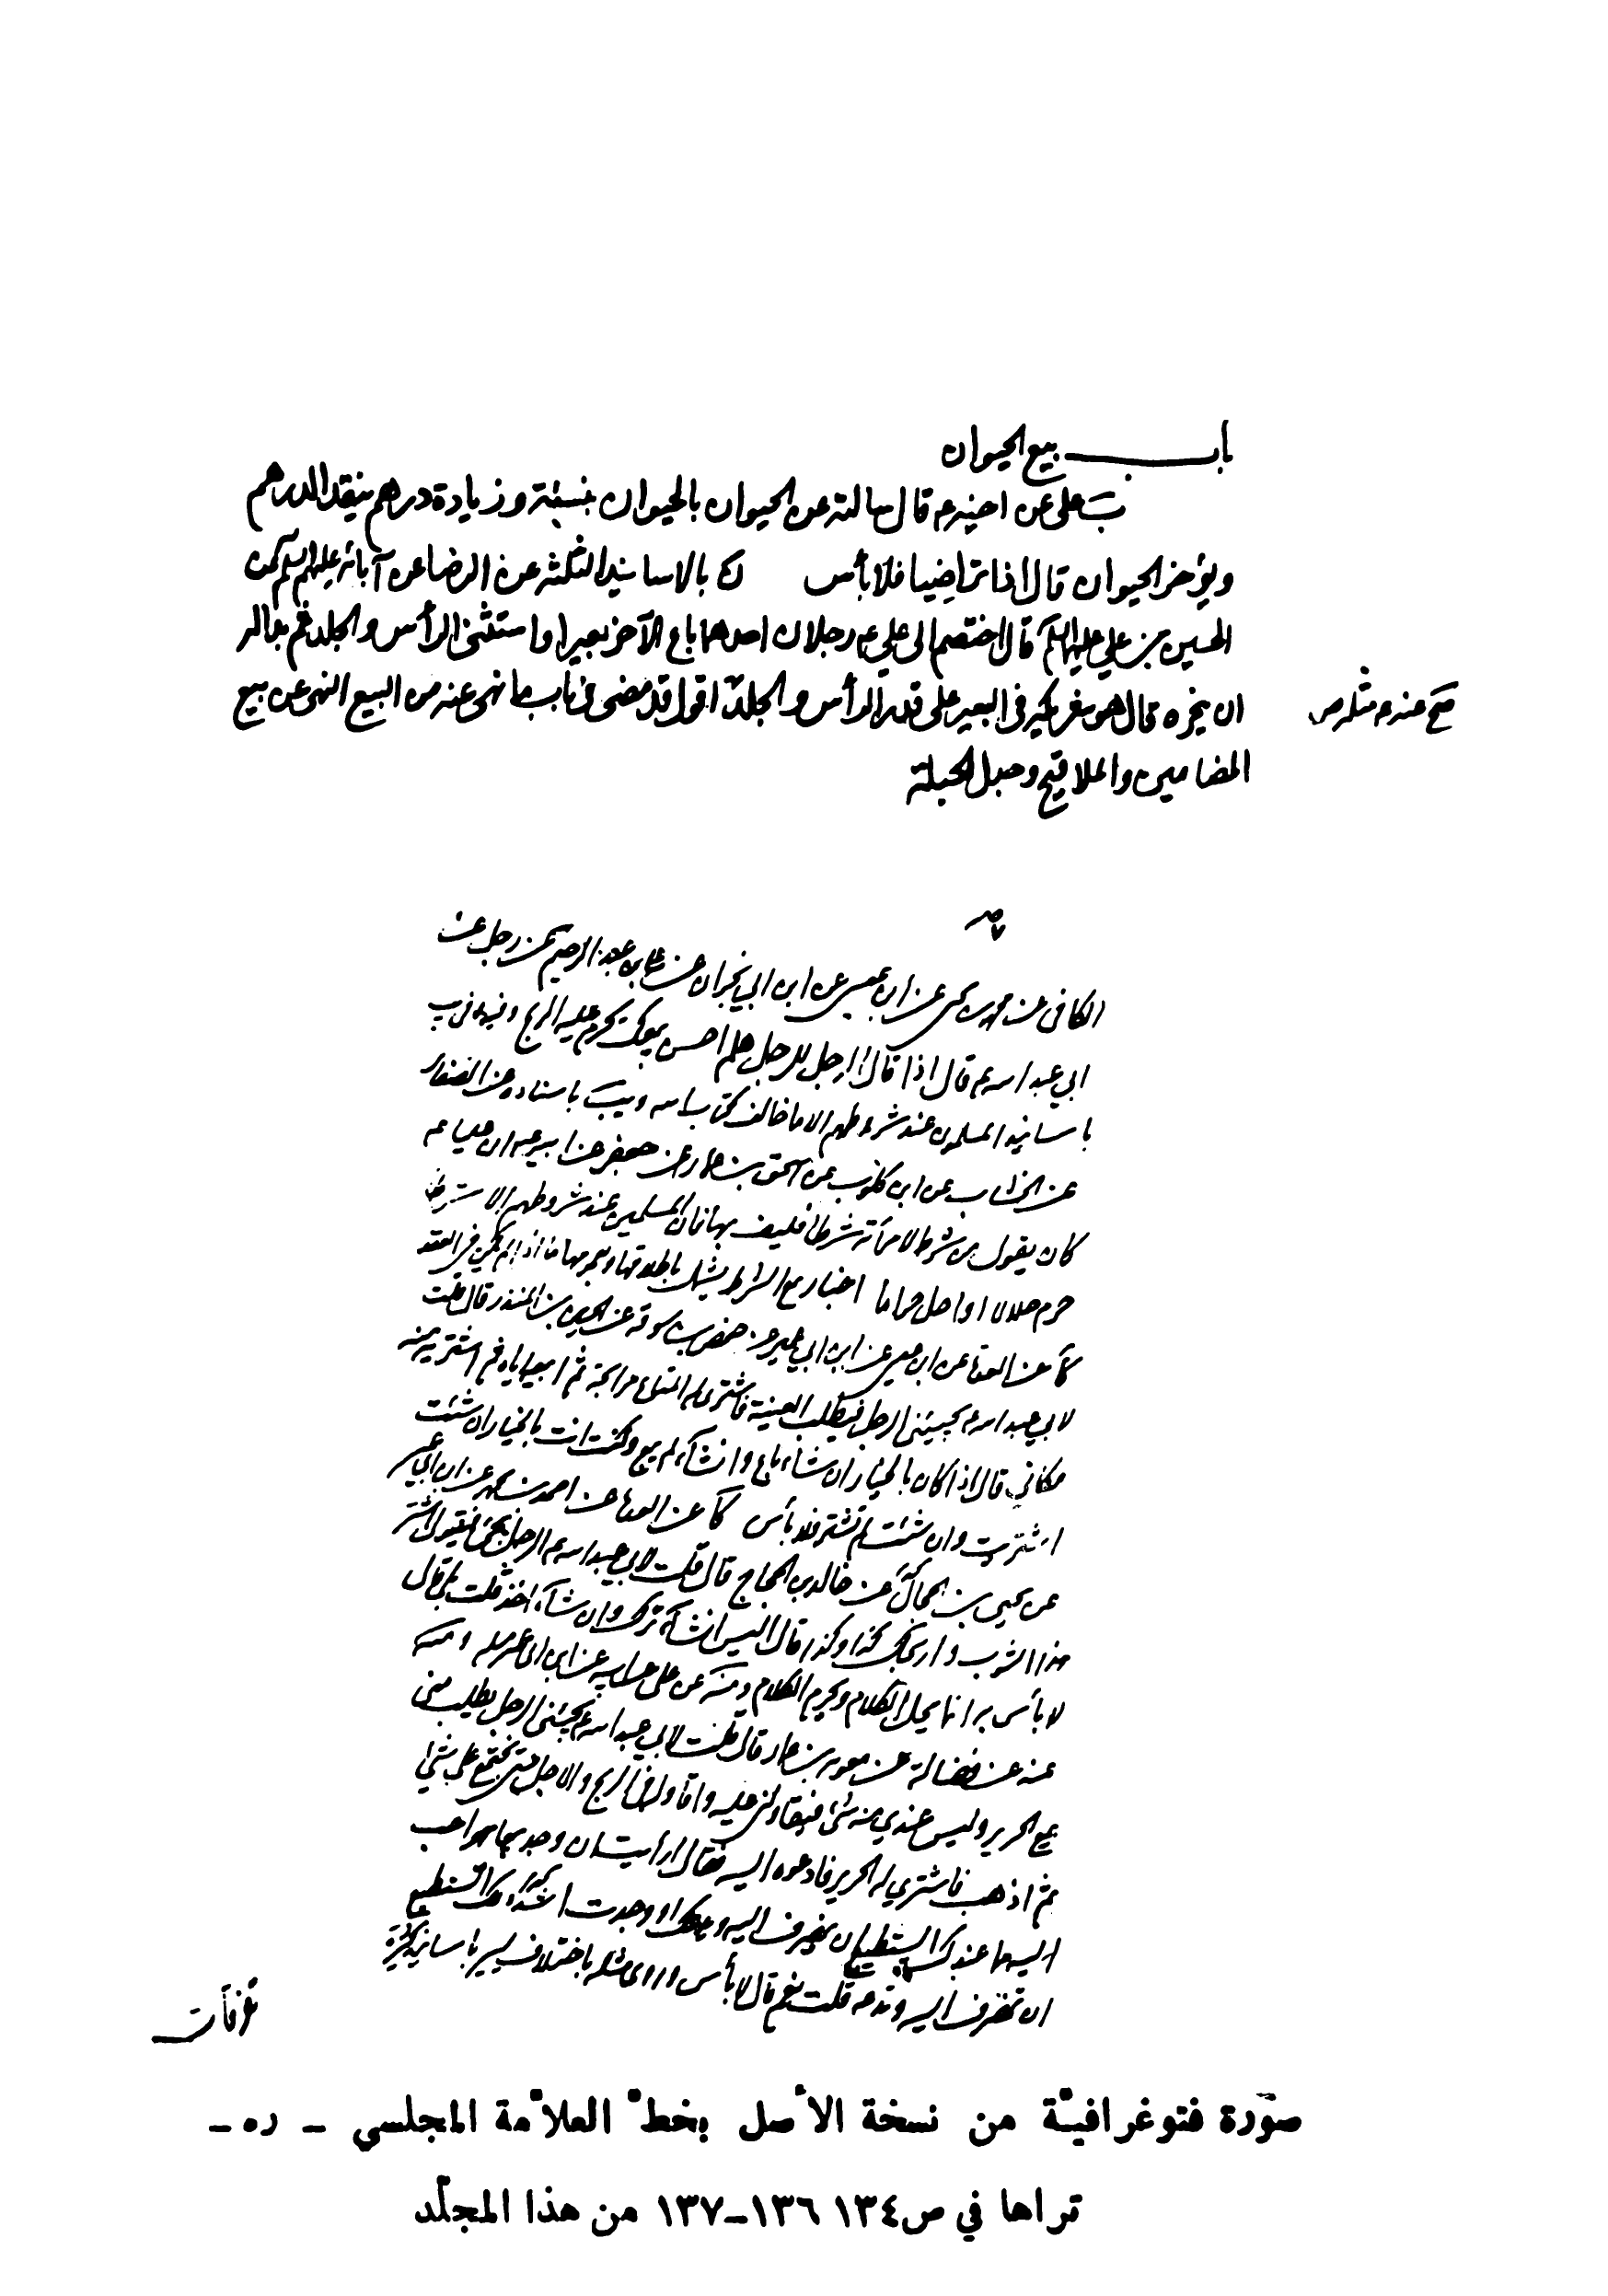 باب بيع الحيوان
ب على عن اخيه ع قال سالته عن الحيوان بالحيوان بنسيئة وزيادة درهم ينقد الدرهم
ويؤخر الحيوان قال اذا تراضيا فلا بأس ن بالاسانيد الثلثة عن الرضا عن آبائه عليهم السلم عن
الحسين بن علي عليهما السلم قال اختصم الى علي ع رجلان احدهما باع الآخر بعيرا واستثنى الرأس والجلد ثم بدا له
ان ينحره قال هو شريكه في البعير على قدر الرأس والجلد اقول قد مضى في باب ما نهى عنه من البيع النهى عن بيع
صح عنه ع مثله ص
المضامين والملاقيح وحبل الحبلة
الكافى عن محمد بن يحيى عن ابن عيسى عن ابن ابي نجران عن علي بن عبد الرحيم عن رجل عن
ابي عبد الله ع قال اذا قال الرجل للرجل هلم احسن بيعك يحرم عليه الربح
باسانيد المسلمون عند شروطهم الا ما خالف كتاب الله ويب باسناده عن الصفار
عن الخشاب عن ابن كلوب عن اسحق بن عمار عن جعفر عن ابيه ع ان عليا ع
كان يقول من شرط لامرأته شرطا فليف لها به فان المسلمين عند شروطهم الا شرط
حرم حلالا او احل حراما
كا عن العدة عن ابن عيسى عن ابن ابي عمير عن حفص بن سوقة عن الحسين بن المنذر قال قلت
لابي عبد الله ع يجيئنى الرجل فيطلب العينة فاشترى له المتاع مرابحة ثم ابيعه اياه ثم اشتريه منه
مكاني قال اذا كان بالخيار ان شاء باع وان شاء لم يبع وكنت انت بالخيار ان شئت
اشتريت وان شئت لم تشتر فلا بأس كا عن العدة عن احمد بن محمد عن ابن ابي عمير
عن يحيى بن الحجاج عن خالد بن الحجاج قال قلت لابي عبد الله ع الرجل يجئ فيقول اشتر
هذا الثوب واربحك كذا وكذا قال اليس ان شاء ترك وان شاء اخذ قلت بلى قال
لا بأس به انما يحل الكلام ويحرم الكلام ومنه عن على عن ابيه عن ابن ابي عمير مثله ومنه
عنه عن فضالة عن معوية بن عمار قال قلت لابي عبد الله ع يجيئنى الرجل يطلب منى
بيع الحرير وليس عندي منه شئ فيقاولنى عليه واقاوله في الربح والاجل حتى نجتمع على شئ
ثم اذهب فاشترى له الحرير فادعوه اليه فقال ارأيت ان وجد بيعا هو احب
اليه مما عندك ايستطيع ان ينصرف اليه ويدعك او وجدت انت ذلك اتستطيع
ان تنصرف اليه وتدعه قلت نعم قال لا بأس وروى مثله باختلاف يسير باسانيد كثيرة
صورة فتوغرافيّة من نسخة الأصل بخطّ العلاّمة المجلسي - ره -
تراها في ص١٣٤ ١٣٦-١٣٧ من هذا المجلّد